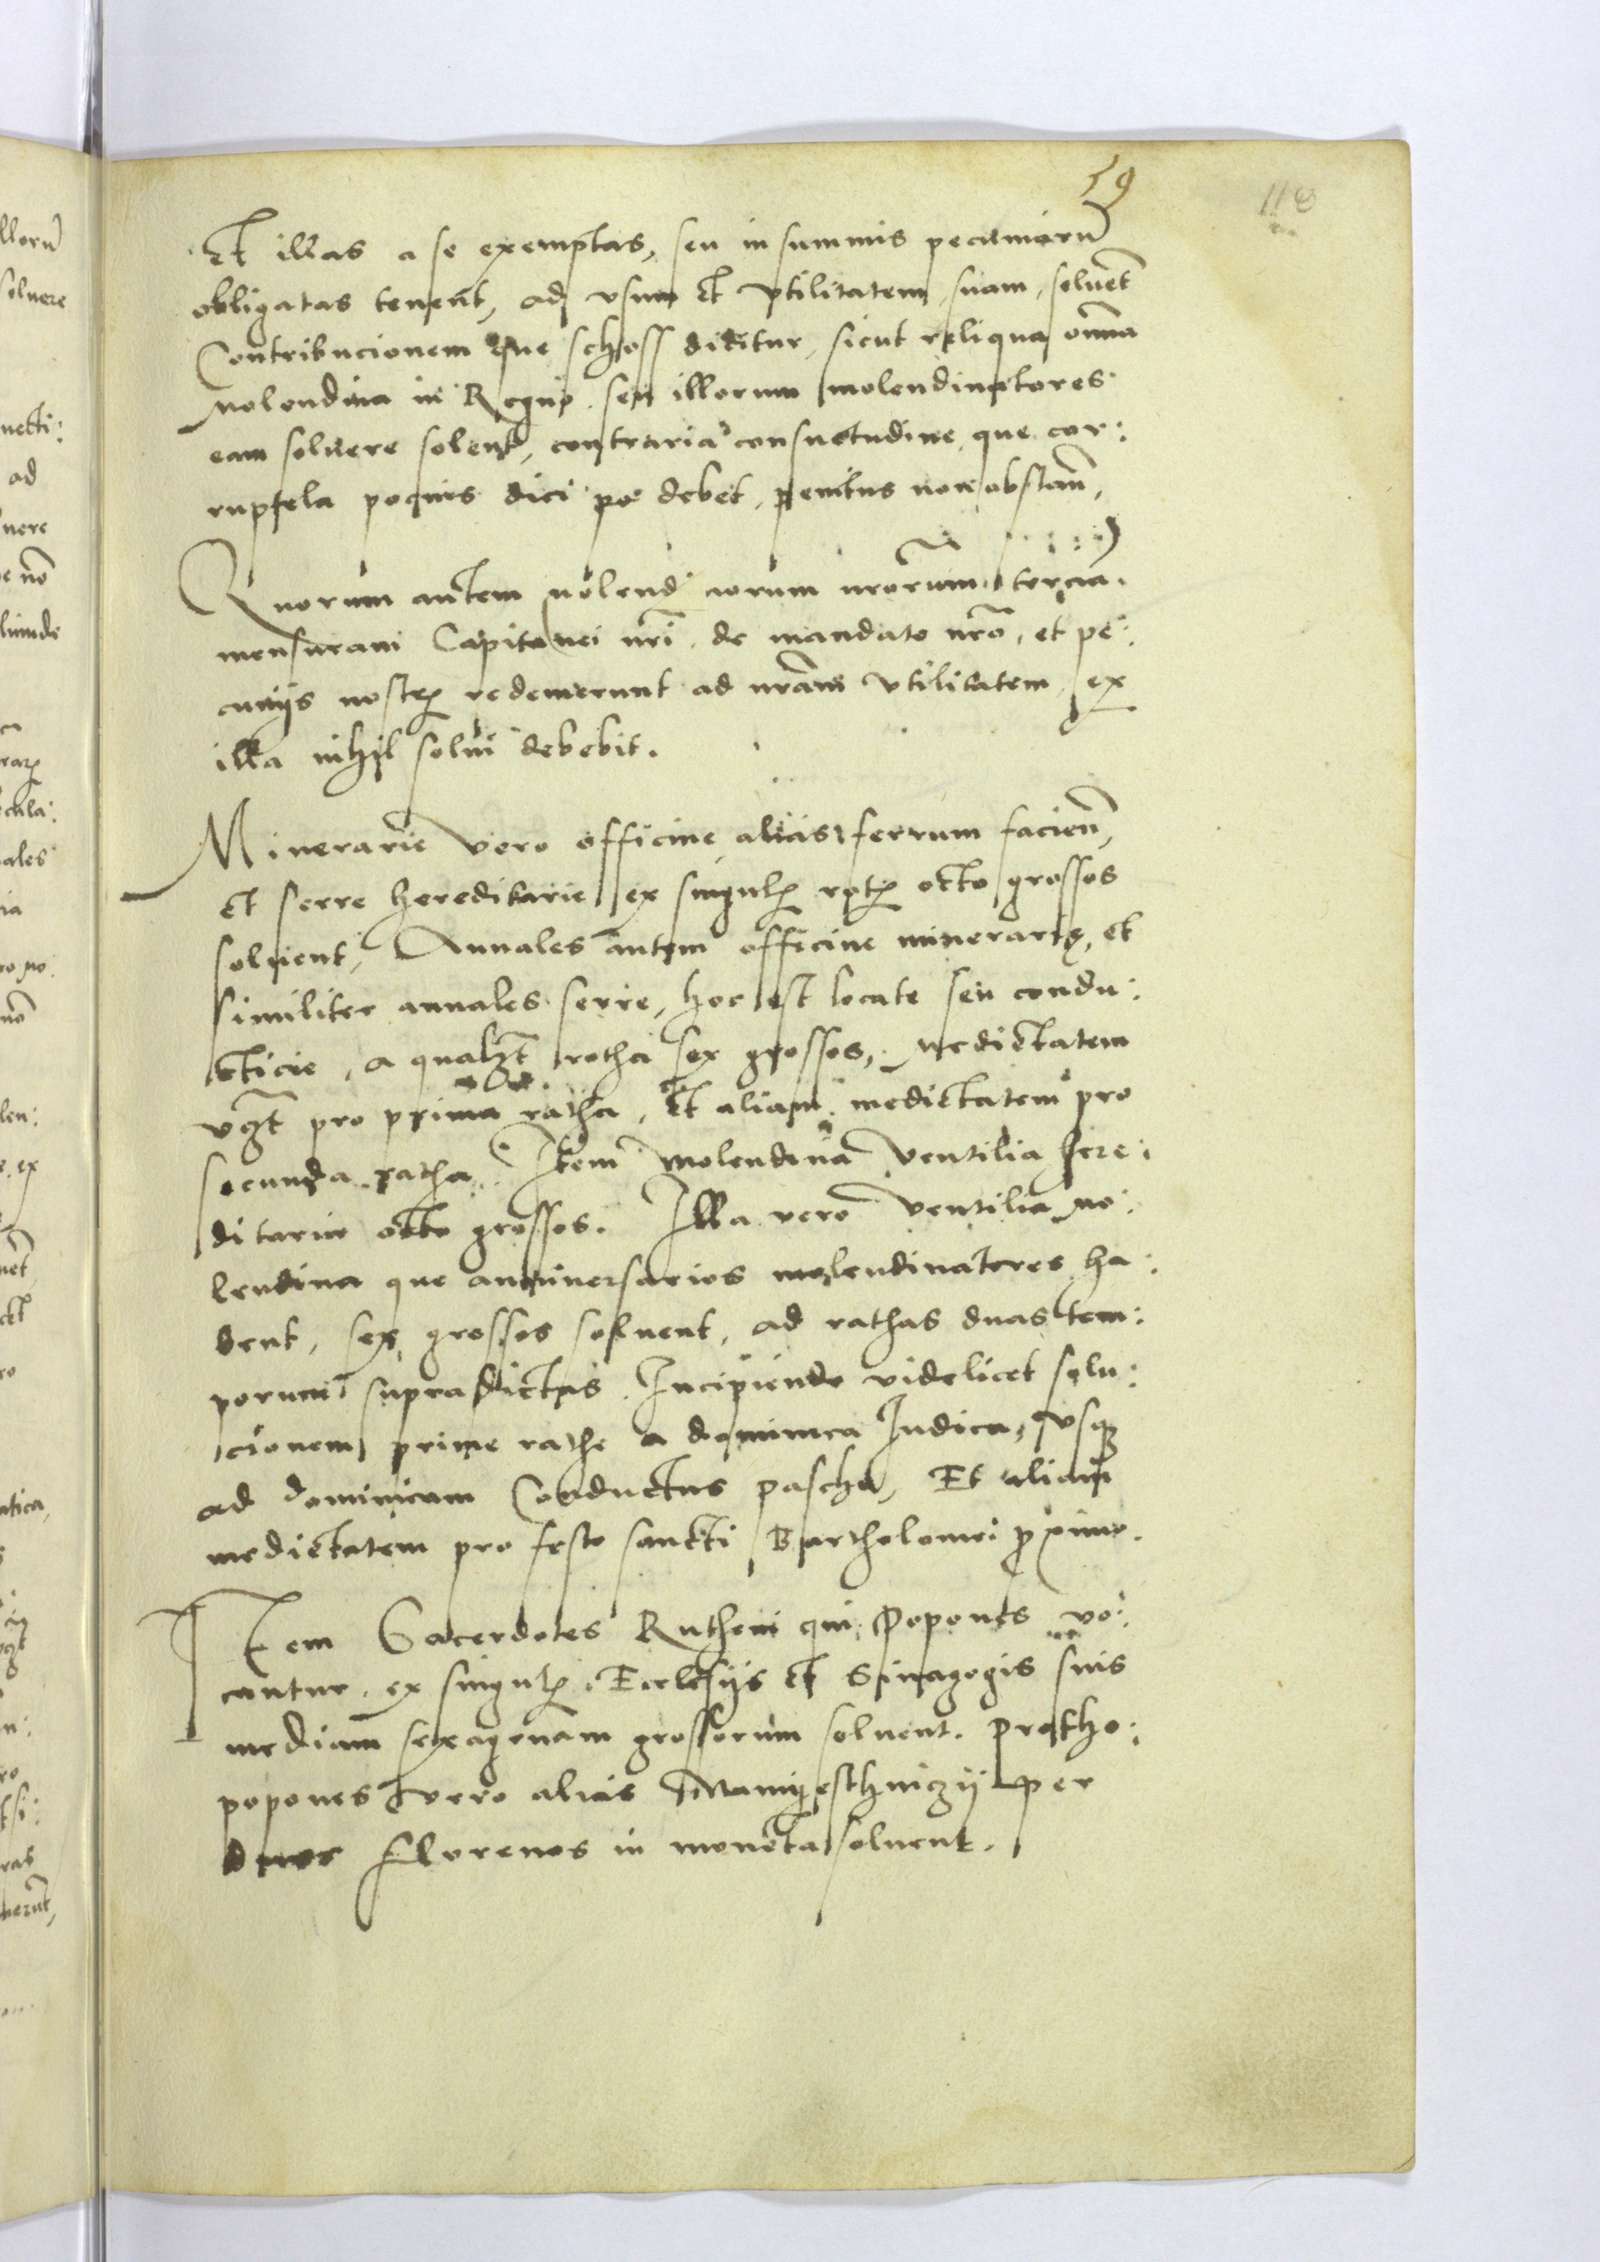 59
118
Et illas a se exemptas, seu in summis pecuniarũ
obligatas tenent, ad vsum et vtilitatem suam, soluẽt
Contribucionem que schoss dicitur, sicut reliqua om̃ia
Molendina in Regno, seu illorum molendinatores
eam soluere solent, contraria consuetudine que cor:
ruptela pocius dici debet, penitus non obstañ,
Quorum autem molend: aorum nr̃orum, terciam
mensuram Capitanei nr̃i, de mandato nr̃o, et pe:
cunijs nostrꝫ redemerunt ad nr̃am vtilitatem, ex
illa nihil solui debebit.
Minerarie vero officine alias ferrum facieñ,
et serre hereditarie ex singulꝫ rotꝫ octo grossos
soluent, Annales autem officine minerarię, et
similiter annales serre, hoc est locate seu condu:
cticie, a qualꝫt rotha sex grossos, medietatem
vꝫt pro prima ratha, Et aliam medietatem pro
secunda ratha. Item Molendina Ventilia here:
ditarie octo grossos. Illa vero Ventilia mo:
lendina que anniuersarios molendinatores ha:
bent, sex grossos soluent, ad rathas duas tem:
porum supradictas. Incipiendo videlicet solu:
cionem prime rathe a dominica Iudica, vsqꝫ
ad dominicam Conductus pascha, Et aliam
medietatem pro festo sancti Bartholomei ꝓximo.
Item Sacerdotes Rutheni qui Popones vo:
cantur, ex singulꝫ Ecclesijs et Sinagogis suis
mediam sexagenam grossorum soluent. Protho:
popones vero alias Namyeschniczij per
duos Florenos in moneta soluent.